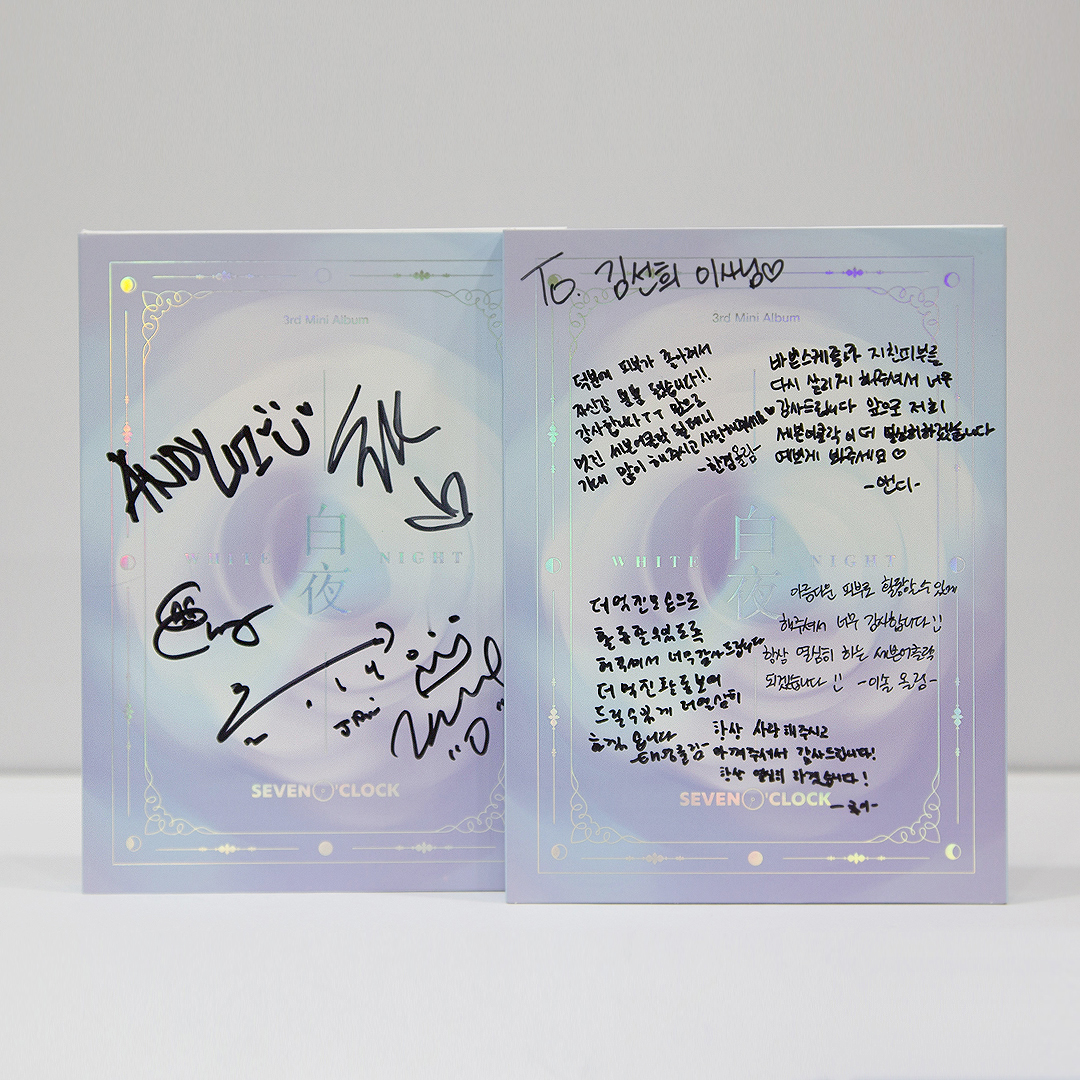 3rd Mini Album
ANDY
白夜
WHITE NIGHT
SEVEN O'CLOCK
To. 김선희 이사님♡
3rd Mini Album
덕분에 피부가 좋아져서
자신감 뿜뿜 됐습니다!!
감사합니다ㅜㅜ 앞으로
멋진 세븐어클락 될테니
기대 많이 해주시고 사랑해주세요♥
-한겸올림-
바쁜스케줄에 지친피부를
다시 살리게 해주셔서 너무
감사드립니다 앞으로 저희
세븐어클락이 더 열심히하겠습니다
예쁘게 봐주세요♡
-앤디-
白夜
WHITE NIGHT
더 멋진모습으로
활동할수있도록
해주셔서 너무감사드립니다
더 멋진활동보여
드릴수있게 더열심히
아름다운 피부로 활동할 수 있게
해주셔서 너무 감사합니다!!
항상 열심히 하는 세븐어클락
되겠습니다!! -이솔 올림-
항상 사랑해주시고
아껴주셔서 감사드립니다!
항상 열심히 하겠습니다!
SEVEN O'CLOCK